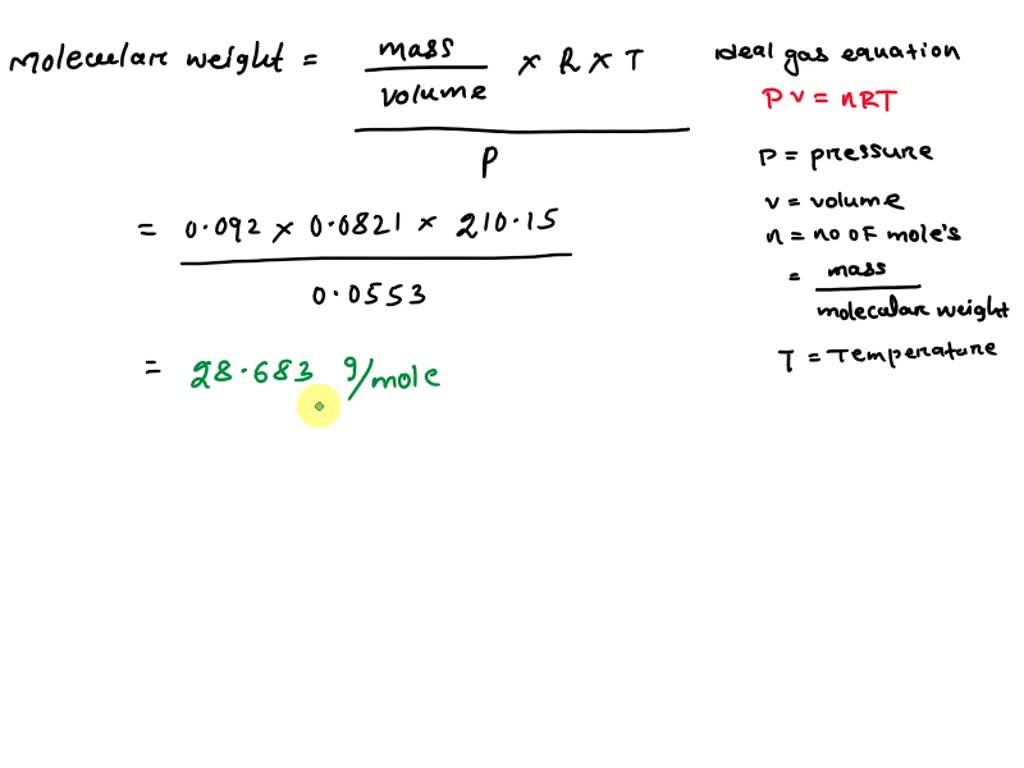 Moleculare weight = mass / volume × R × T
P
= 0.092 × 0.0821 × 210.15
0.0553
= 28.683 g/mole
ideal gas equation
PV = nRT
P = pressure
V = volume
n = no of mole's
= mass
molecular weight
T = Temperature